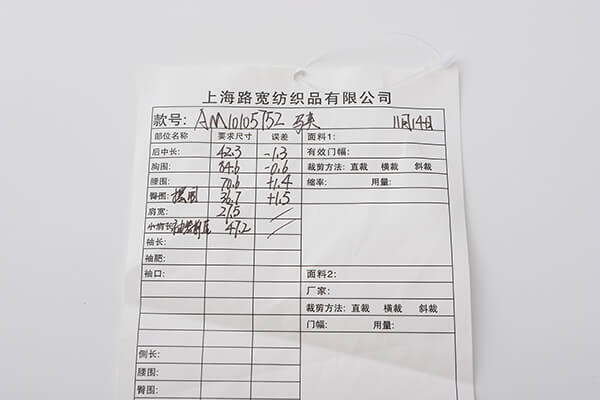 上海路宽纺织品有限公司
款号: AM10105752 11月14日
部位名称 要求尺寸 误差 面料1:
后中长: 42.3 -1.3 有效门幅:
胸围: 84.6 -0.6 裁剪方法: 直裁 横裁 斜裁
腰围: 70.6 +1.4 缩率: 用量:
臀围: 摆围 36.7 +1.5
肩宽: 27.5
小肩长 47.2
袖长:
袖肥:
袖口: 面料2:
厂家:
裁剪方法: 直裁 横裁 斜裁
门幅: 用量:
侧长:
腰围:
臀围: